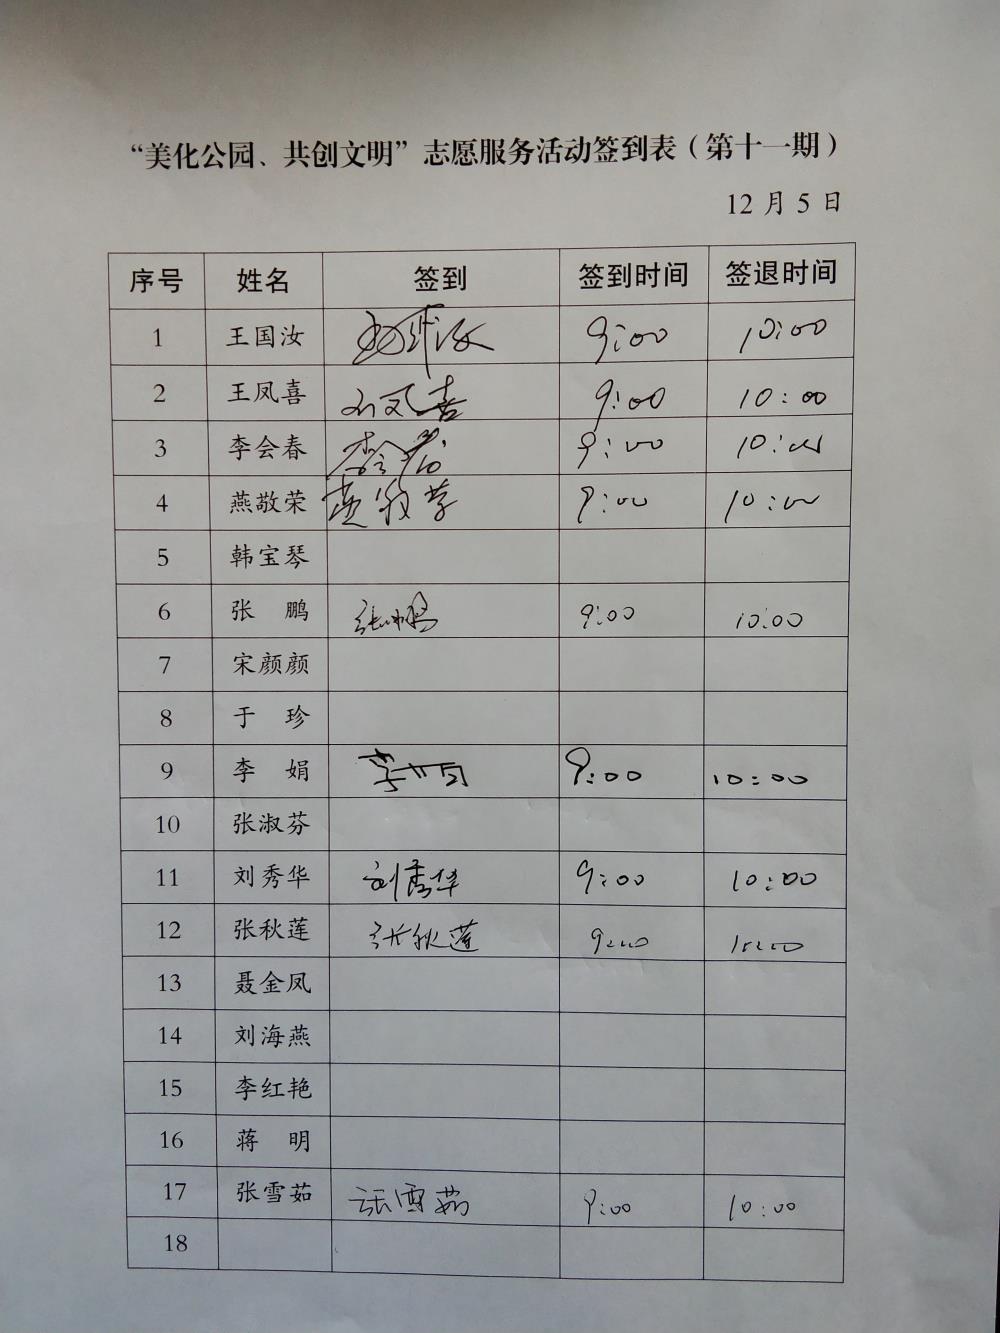 “美化公园、共创文明”志愿服务活动签到表（第十一期）
12 月 5 日
序号 姓名 签到 签到时间 签退时间
1 王国汝 9:00 10:00
2 王凤喜 9:00 10:00
3 李会春 李会春 9:00 10:00
4 燕敬荣 燕敬荣 9:00 10:00
5 韩宝琴
6 张 鹏 张鹏 9:00 10:00
7 宋颜颜
8 于 珍
9 李 娟 李娟 9:00 10:00
10 张淑芬
11 刘秀华 刘秀华 9:00 10:00
12 张秋莲 张秋莲 9:00 10:00
13 聂金凤
14 刘海燕
15 李红艳
16 蒋 明
17 张雪茹 张雪茹 9:00 10:00
18